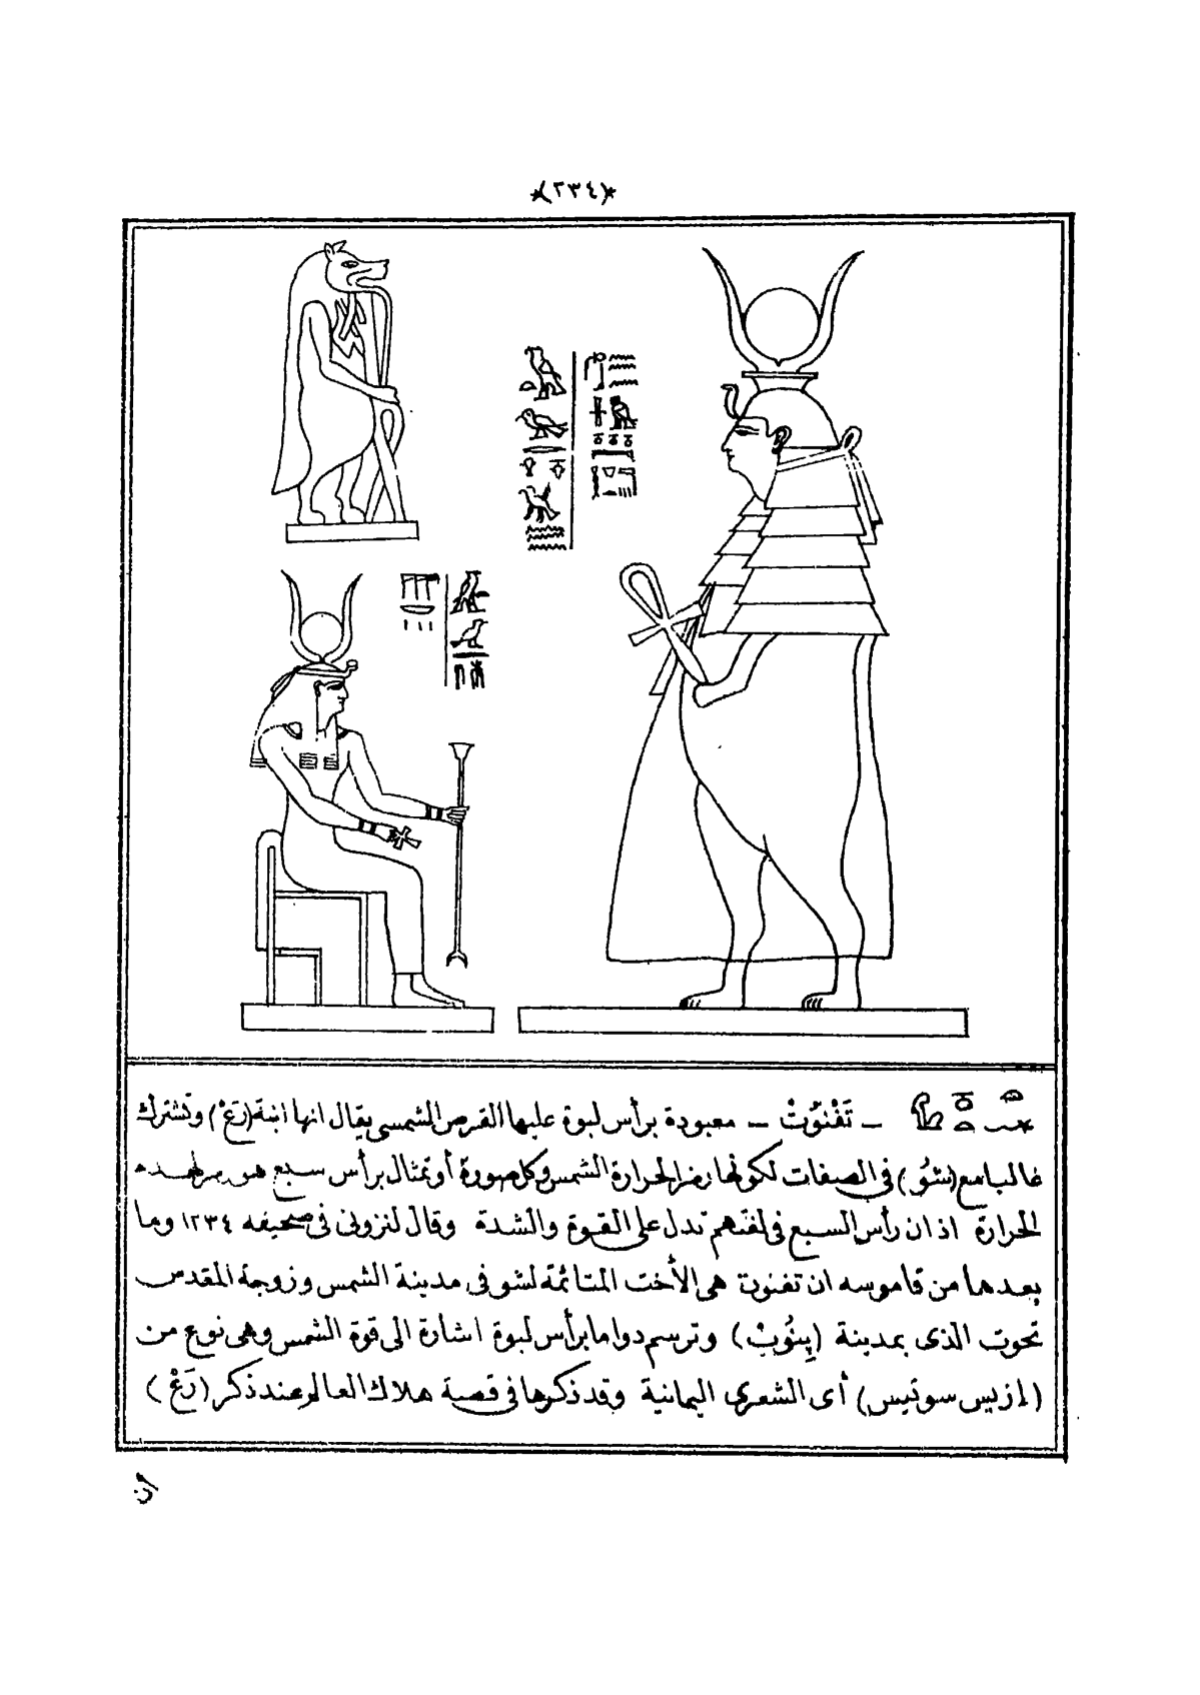 (٢٣٤)
ـ تَفْنُوتْ ـ معبودة برأس لبوة عليها القرص الشمسى يقال انها ابنة (رَعْ) وتشترك
غالبا مع (شُو) فى الصفات لكونها رمز الحرارة الشمس وكل صورة أو تمثال برأس سبع هو رمز لهذه
الحرارة اذ ان رأس السبع فى لغتهم تدل على القوة والشدة وقال لنزونى فى صحيفه ١٢٣٤ وما
بعدها من قاموسه ان تفنوت هى الأخت المتائمة لشو فى مدينة الشمس وزوجة المقدس
تحوت الذى بمدينة (پِنُوبْ) وترسم دواما برأس لبوة اشارة الى قوة الشمس وهى نوع من
(ازيس سوتيس) أى الشعرى اليمانية وقد ذكرها فى قصة هلاك العالم عند ذكر (رَعْ)